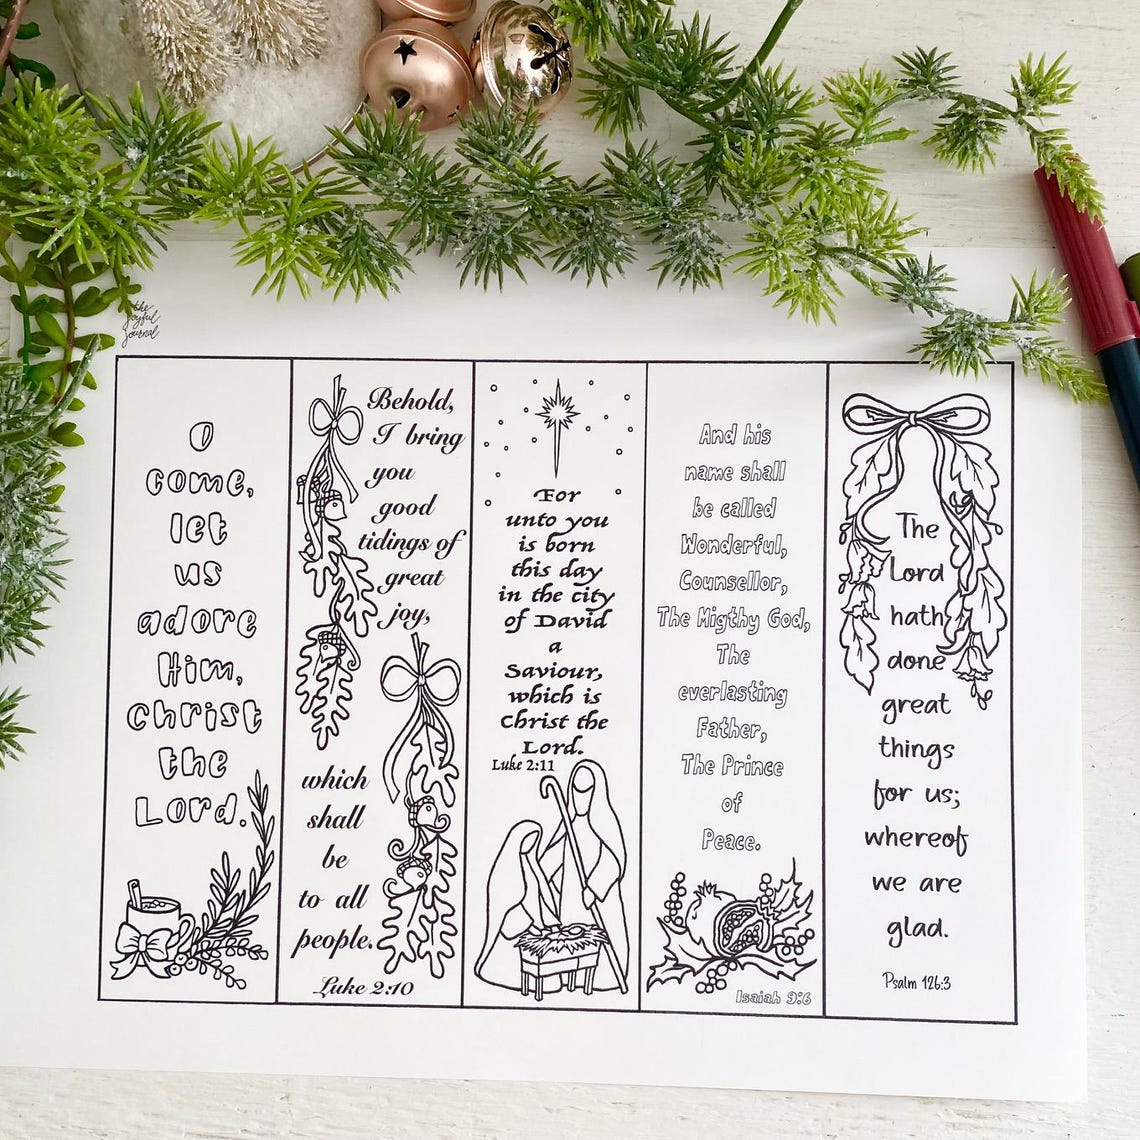 the
Joyful
Journal
O
come,
let
us
adore
Him,
Christ
the
Lord.
Behold,
I bring
you
good
tidings of
great
joy,
which
shall
be
to all
people.
Luke 2:10
For
unto you
is born
this day
in the city
of David
a
Saviour,
which is
Christ the
Lord.
Luke 2:11
And his
name shall
be called
Wonderful,
Counsellor,
The Migthy God,
The
everlasting
Father,
The Prince
of
Peace.
Isaiah 9:6
The
Lord
hath
done
great
things
for us;
whereof
we are
glad.
Psalm 126:3